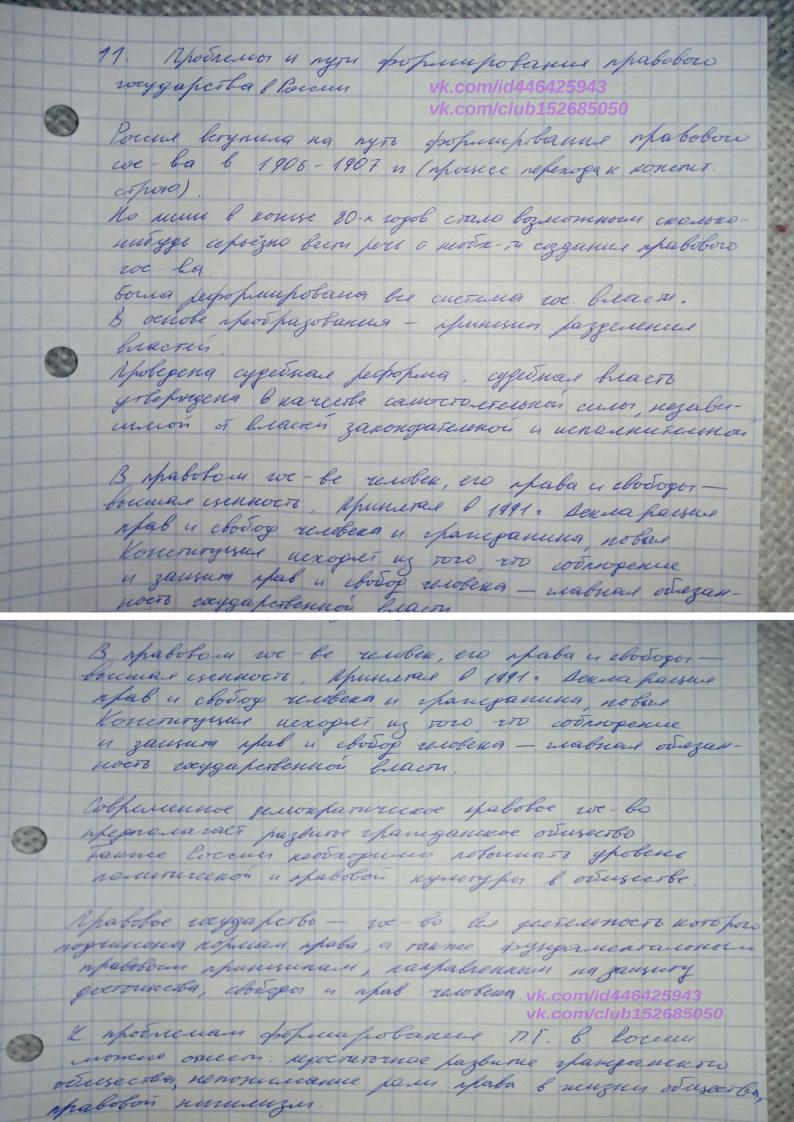 11. Проблемы и пути формирования правового
государства в России
vk.com/id446425943
vk.com/club152685050
Россия вступила на путь формирования правового
гос-ва в 1906-1907 гг (процесс перехода к констит.
строю).
Но лишь в конце 80-х годов стало возможным сколько-
нибудь серьёзно вести речь о необх-ти создания правового
гос-ва.
Была реформирована вся система гос. власти.
В основе преобразования – принцип разделения
властей.
Проведена судебная реформа. судебная власть
утверждена в качестве самостоятельной силы, незави-
симой от властей законодательной и исполнительной
В правовом гос-ве человек, его права и свободы –
высшая ценность. Принятая в 1991 г Декларация
прав и свобод человека и гражданина, новая
Конституция исходят из того, что соблюдение
и защита прав и свобод человека – главная обязан-
ность государственной власти
В правовом гос-ве человек, его права и свободы –
высшая ценность. Принятая в 1991 г Декларация
прав и свобод человека и гражданина, новая
Конституция исходят из того, что соблюдение
и защита прав и свобод человека – главная обязан-
ность государственной власти.
Современное демократическое правовое гос-во
предполагает развитое гражданское общество
Также России необходимо повышать уровень
политической и правовой культуры в обществе.
Правовое государство – гос-во, вся деятельность которого
подчинена нормам права, а также фундаментальным
правовым принципам, направленным на защиту
достоинства, свободы и прав человека.
vk.com/id446425943
vk.com/club152685050
К проблемам формирования П.Г. в России
можно отнести: недостаточное развитие гражданского
общества, непонимание роли права в жизни общества,
правовой нигилизм.